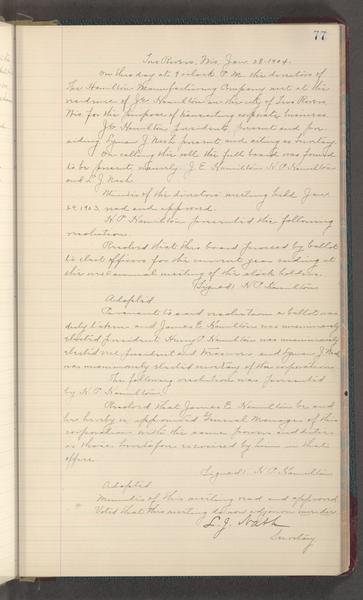 77
Two Rivers, Wis. Jan. 28. 1904.
On this day at 9 o'clock P.M. the directors of
The Hamilton Manufacturing Company met at the
residence of J.E. Hamilton in the city of Two Rivers
Wis. for the purpose of transacting corporate business.
J.E. Hamilton president, present and pre-
siding Lyman J. Nash present and acting as secretary.
On calling the roll the full board was found
to be present, namely: J.E. Hamilton H.P. Hamilton
and L.J. Nash
Minutes of the directors meeting held Jan
29, 1903, read and approved.
H.P. Hamilton presented the following
resolution.
Resolved that this board proceed by ballot
to elect officers for the current year ending at
the next annual meeting of the stock holders.
(Signed) H.P. Hamilton
Adopted.
Pursuant to said resolution a ballot was
duly taken and James E. Hamilton was unanimously
elected president, Henry P. Hamilton was unanimously
elected vice president and treasurer and Lyman J. Nash
was unanimously elected secretary of the corporation
The following resolution was presented
by H.P. Hamilton:
Resolved that James E. Hamilton be and
he hereby is appointed General Manager of this
corporation with the same powers and duties
as those heretofore exercised by him in that
office.
(Signed) H.P. Hamilton
Adopted.
Minutes of this meeting read and approved
Voted that this meeting do now adjourn
L. J. Nash
Secretary